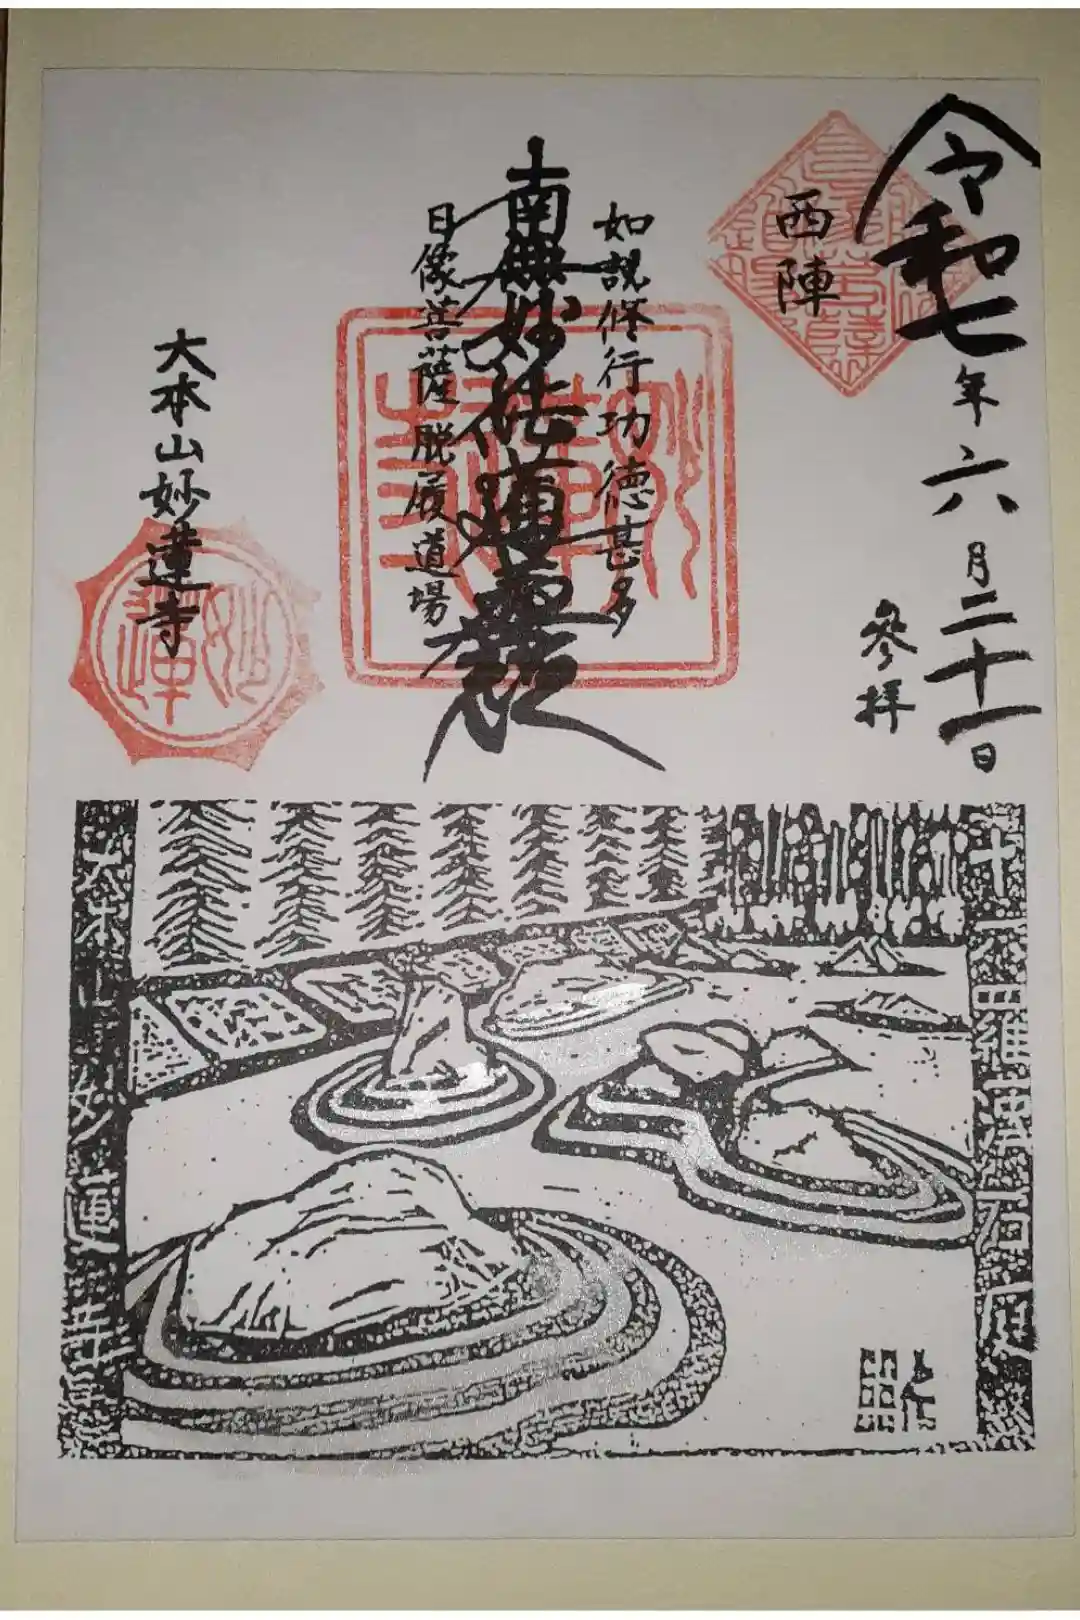 令和七年六月二十一日
參拝
西陣
如説修行功徳甚多
南無妙法蓮華経
日像菩薩脱履道場
大本山妙蓮寺
妙蓮
十六羅漢石庭
大本山妙蓮寺